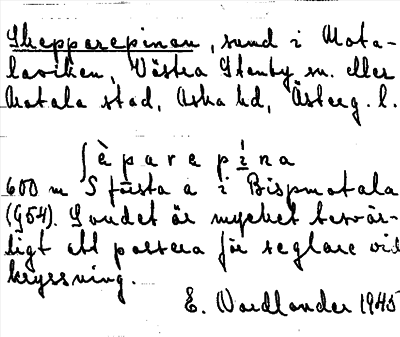 Skepparepinan, sund i Mota-
laviken, Västra Stenby sn. eller
Motala stad, Aska hd, Österg. l.
ʃèparepina
600 m S första a i Bispmotala
(G54). Sundet är mycket besvär-
ligt att passera för seglare vid
kryssning.
E. Nordlander 1945